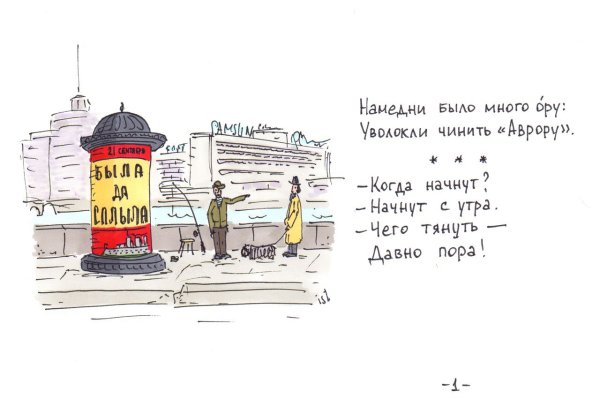 SAMSUN
SOFT
21 СЕНТЯБРЯ
БЫЛА
ДА
СПЛЫЛА
isl
Намедни было много о́ру:
Уволокли чинить «Аврору».
* * *
– Когда начнут?
– Начнут с утра.
– Чего тянуть —
Давно пора!
-1-